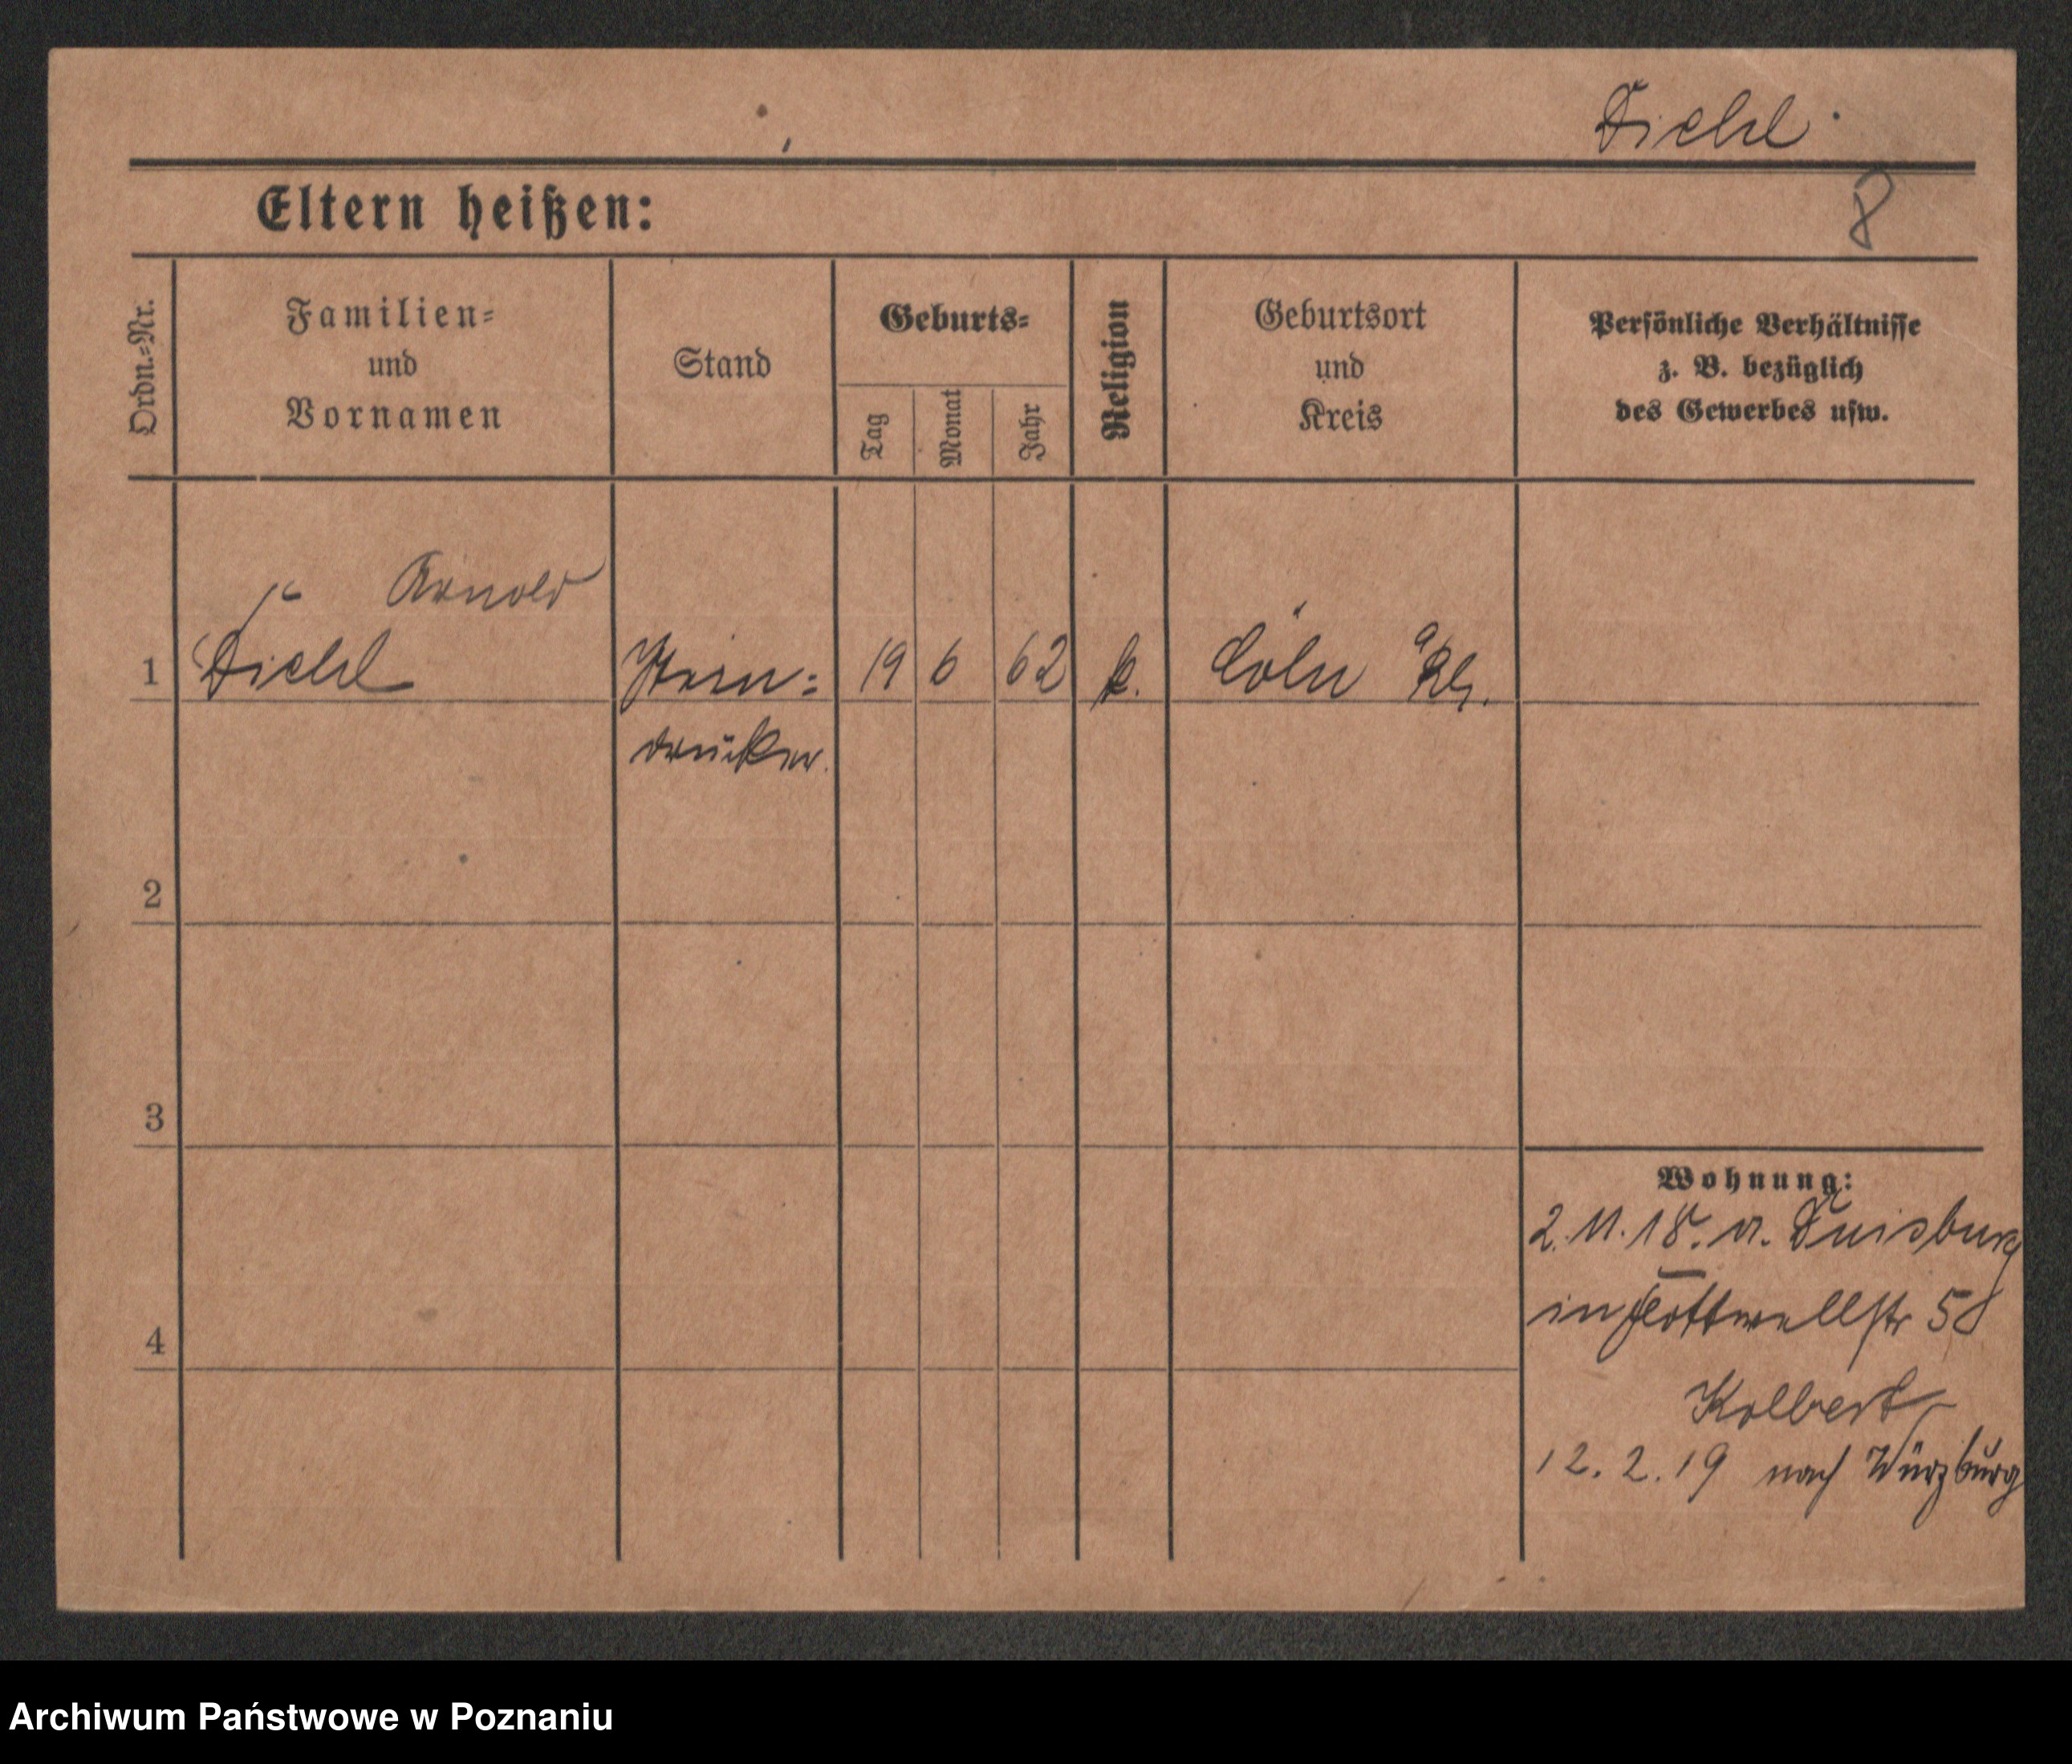 Diehl.
Eltern heißen:
8
Ordn.-Nr.
Familien-
und
Vornamen
Stand
Geburts-
Tag
Monat
Jahr
Religion
Geburtsort
und
Kreis
Persönliche Verhältnisse
z. B. bezüglich
des Gewerbes usw.
Arnold
1 Diehl Stein- 19 6 62 k. Cöln a/Rh.
drucker.
2
3
4
Wohnung:
2. 11. 18. v. Duisburg
in Flottwellstr 58
Kolbert
12. 2. 19 nach Würzburg
Archiwum Państwowe w Poznaniu